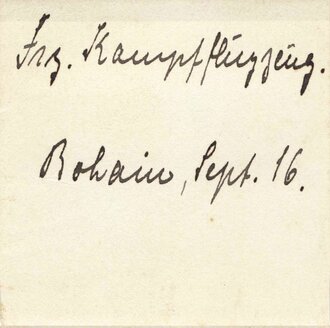 Frz. Kampfflugzeug.
Bohain, Sept. 16.